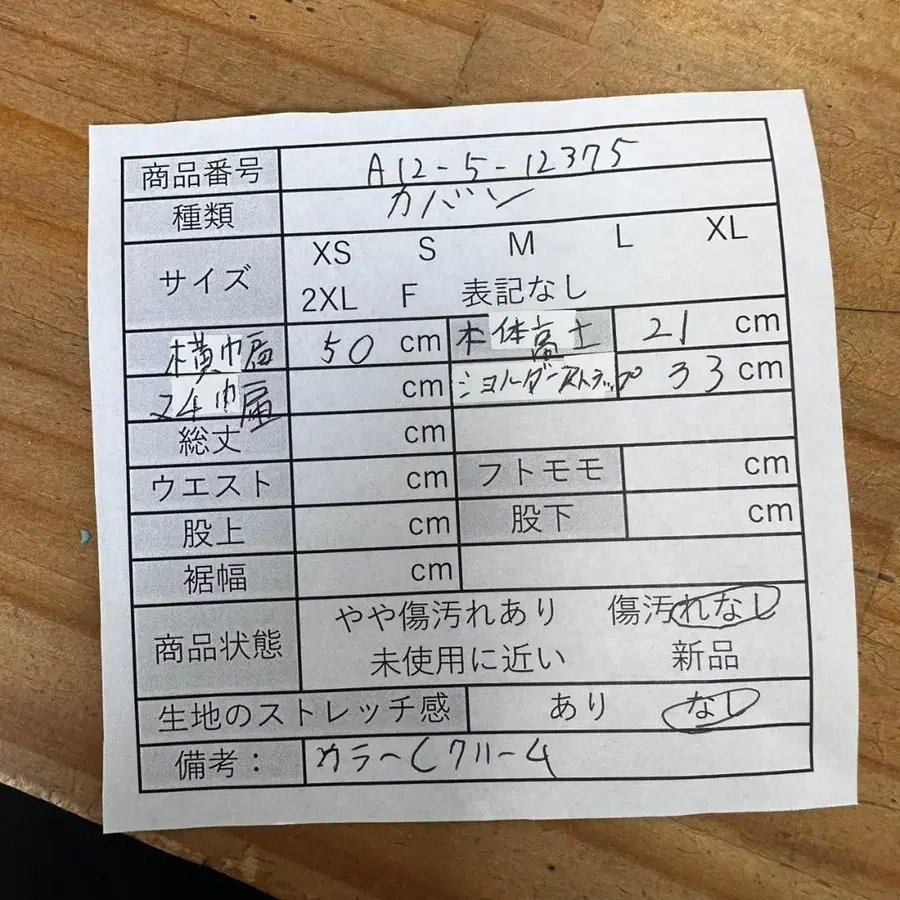 商品番号 A12-5-12375
種類 カバン
サイズ XS S M L XL
2XL F 表記なし
横巾幅 50 cm 本体高士 21 cm
マチ巾幅 cm ショルダーストラップ 33 cm
総丈 cm
ウエスト cm フトモモ cm
股上 cm 股下 cm
裾幅 cm
商品状態 やや傷汚れあり 傷汚れなし
未使用に近い 新品
生地のストレッチ感 あり なし
備考： カラー クリーム